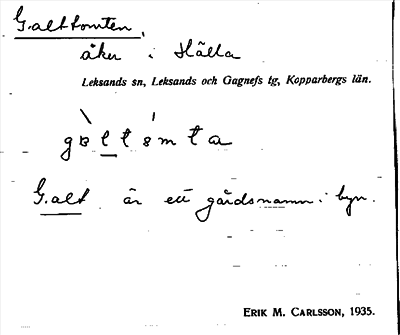 Galttomten,
åker i Hälla
Leksands sn, Leksands och Gagnefs tg, Kopparbergs län.
Galt är ett gårdsnamn i byn.
ERIK M. CARLSSON, 1935.